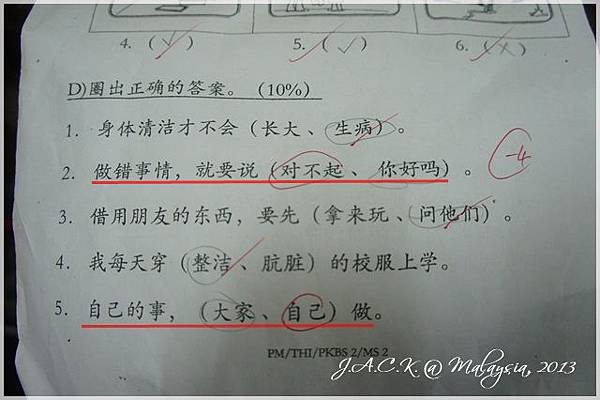 4. (√) 5. (√) 6. (×)
D)圈出正确的答案。 (10%)
1. 身体清洁才不会（长大、生病）。
2. 做错事情，就要说（对不起、你好吗）。 -4
3. 借用朋友的东西，要先（拿来玩、问他们）。
4. 我每天穿（整洁、肮脏）的校服上学。
5. 自己的事，（大家、自己）做。
PM/THI/PKBS 2/MS 2
J.A.C.K. @ Malaysia, 2013